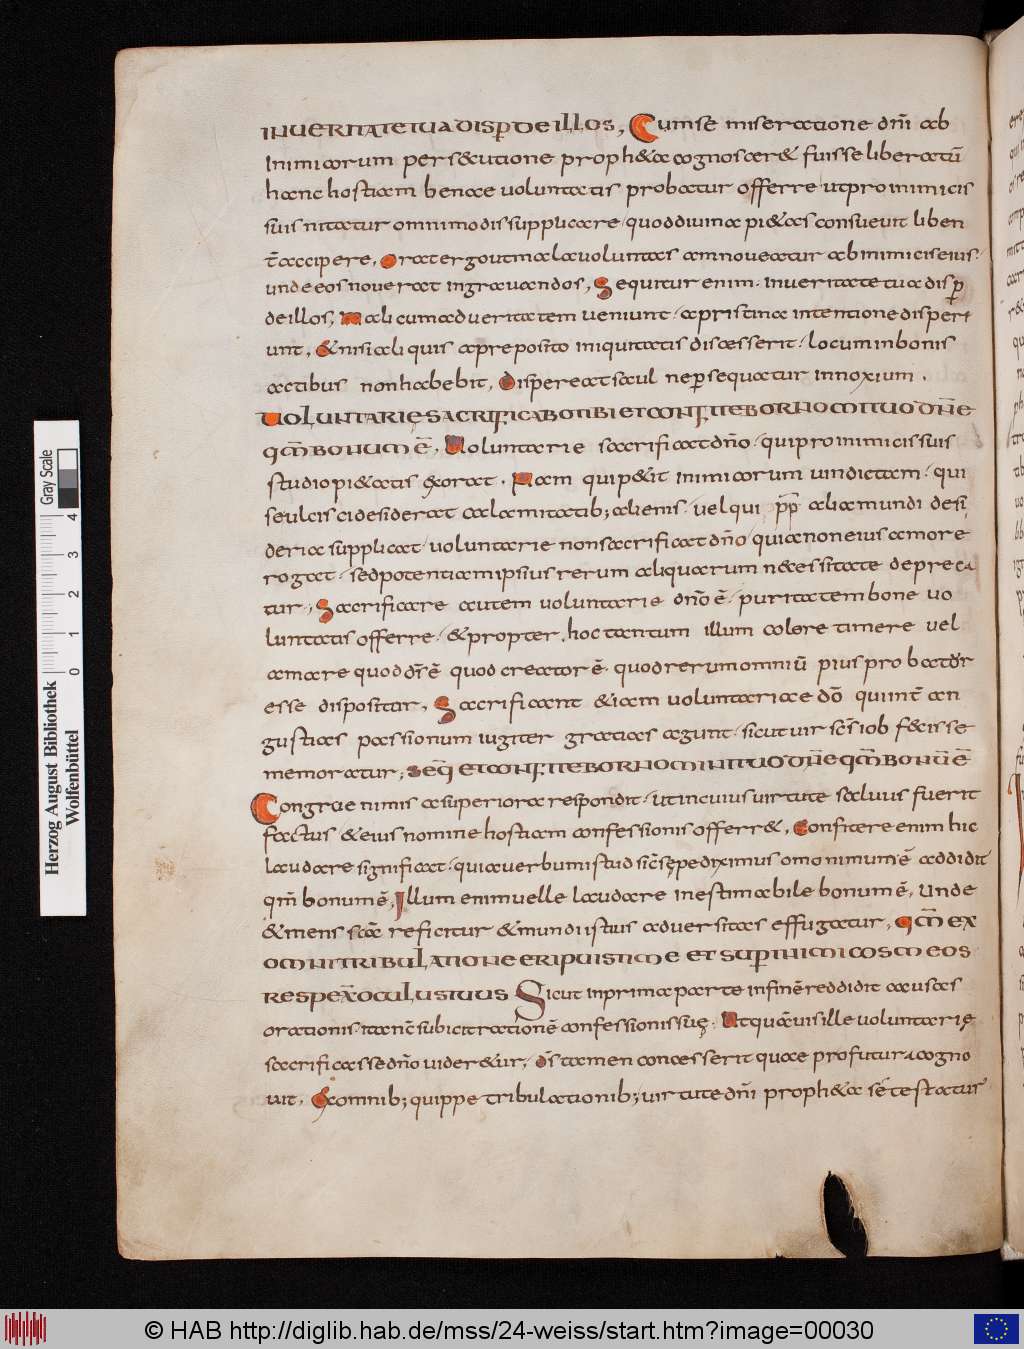 INUERITATETUADISP̄DEILLOS, Cum se miseratione dn̄i ab
Inimicorum persecutione propheta cognosceret fuisse liberatū
hanc hostiam benae uoluntatis probatur offerre· ut pro inimicis
suis nitatur omnimodis supplicare· quod diuina pietas consueuit liben
t̄ accipere, Orat ergo ut mala uoluntas amoueatur ab inimicis eius·
unde eos nouerat ingrauandos, Sequitur enim· In ueritate tua disp̄
de illos, Mali cum ad ueritatem ueniunt· a pristina intentione disperi
unt, Et nisi aliquis a preposito iniquitatis discesserit· locum in bonis
actibus non habebit, Dispereat saul ne p̄sequatur innoxium.
UOLUNTARIĘ SACRIFICABO TIBI ET CONFITEBOR NOMITUO DN̄E
QM̄ BONUM Ē, Uoluntarie sacrificat dn̄o· qui pro inimicis suis
studio pietatis exorat. Nam qui petit inimicorum uindictam· qui
se ulcisci desiderat calamitatib; alienis· uel qui pp̄ alia mundi desi
deria supplicat· uoluntarie non sacrificat dn̄o· quia non eius amore
rogat· sed potentiam ipsius rerum aliquarum necessitate depreca
tur, Sacrificare autem uoluntarie dn̄o ē· puritatem bone uo
luntatis offerre· et propter hoc tantum illum colere timere uel
amare quod dn̄s ē quod creator ē· quod rerum omniū pius probatur
esse dispositur, Sacrificant etiam uoluntariae dō qui int̄ an
gustias passionum iugiter gratias agunt· sicut uir sc̄s iob fecisse
memoratur, SEQ̄ ET CONFITEBOR NOMINI TUO DN̄E QM̄ BONŪ Ē
Congrue nimis a superiora respondit· ut in cuius uirtute saluus fuerit
factus et eius nomine hostiam confessionis offerret, Conficere enim hic
laudare significat· quia uerbum istud sic̄ sępe diximus omonimum ē addidit
qm̄ bonum ē, Illum enim uelle laudare inestimabile bonum ē, Unde
et mens sc̄a reficitur et mundi istius aduersitas effugatur, QM̄ EX
OMNI TRIBULATIONE ERIPUISTI ME ET SUP̄ INIMICOS MEOS
RESPEX̄ OCULUS TUUS Sicut in prima parte in fine reddidit causas
orationis ita n̄c subicit rationē confessionis suę. At quāuis ille uoluntarię
sacrificasse dn̄o uideretur, d̄s tamen concesserit quae profutura cogno
uit, Ex omnib; quippe tribulationib; uirtute dn̄i propheta se testatur
Gray Scale
0 1 2 3 4
Herzog August Bibliothek
Wolfenbüttel
© HAB http://diglib.hab.de/mss/24-weiss/start.htm?image=00030